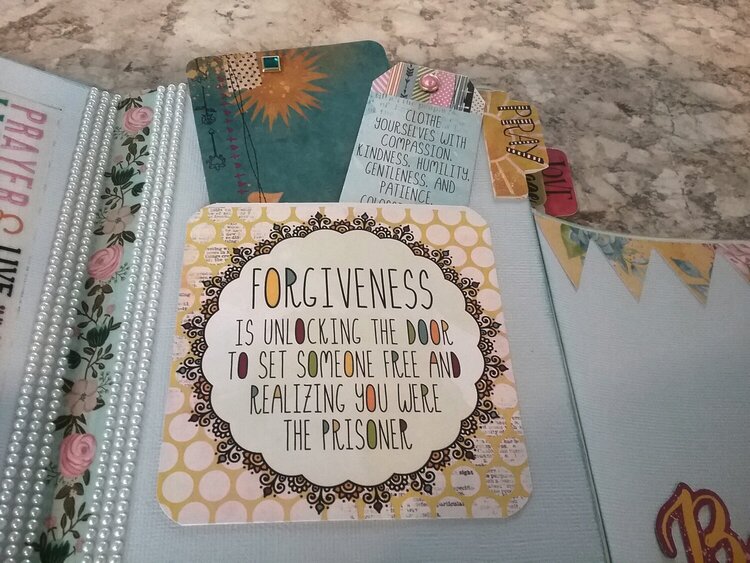 PRAYER &
LIVE
CLOTHE
YOURSELVES WITH
COMPASSION,
KINDNESS, HUMILITY,
GENTLENESS, AND
PATIENCE.
PRAY
LOVE
FORGIVENESS
IS UNLOCKING THE DOOR
TO SET SOMEONE FREE AND
REALIZING YOU WERE
THE PRISONER
sight